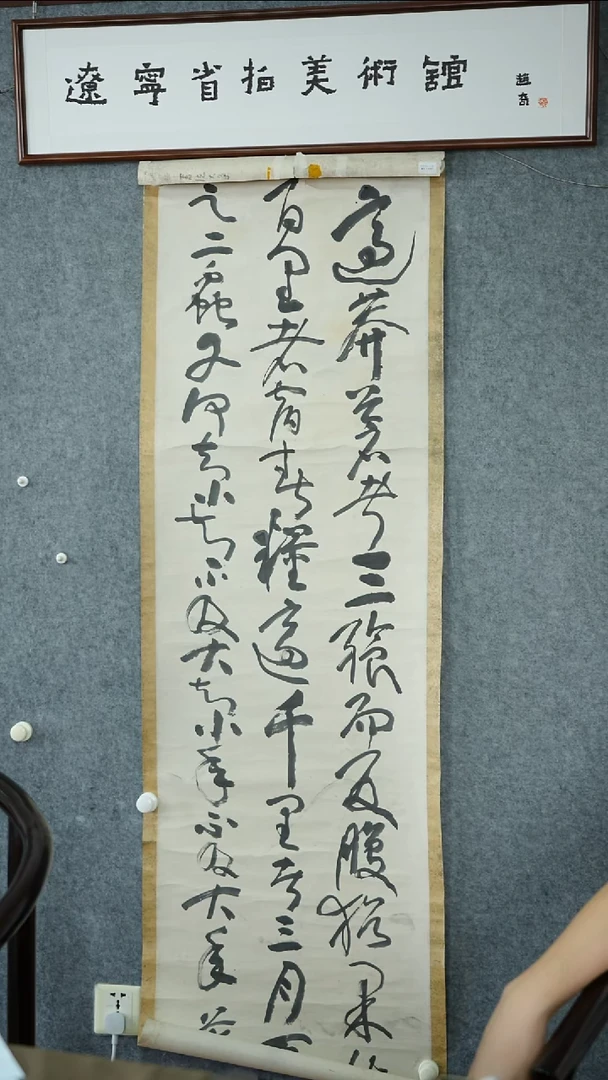 遼寧省拍美術館
趙奇
適莽蒼者三飡而反腹猶果
百里者宿舂糧適千里者三月
之二蟲又何知小知不及大知小年不及大年